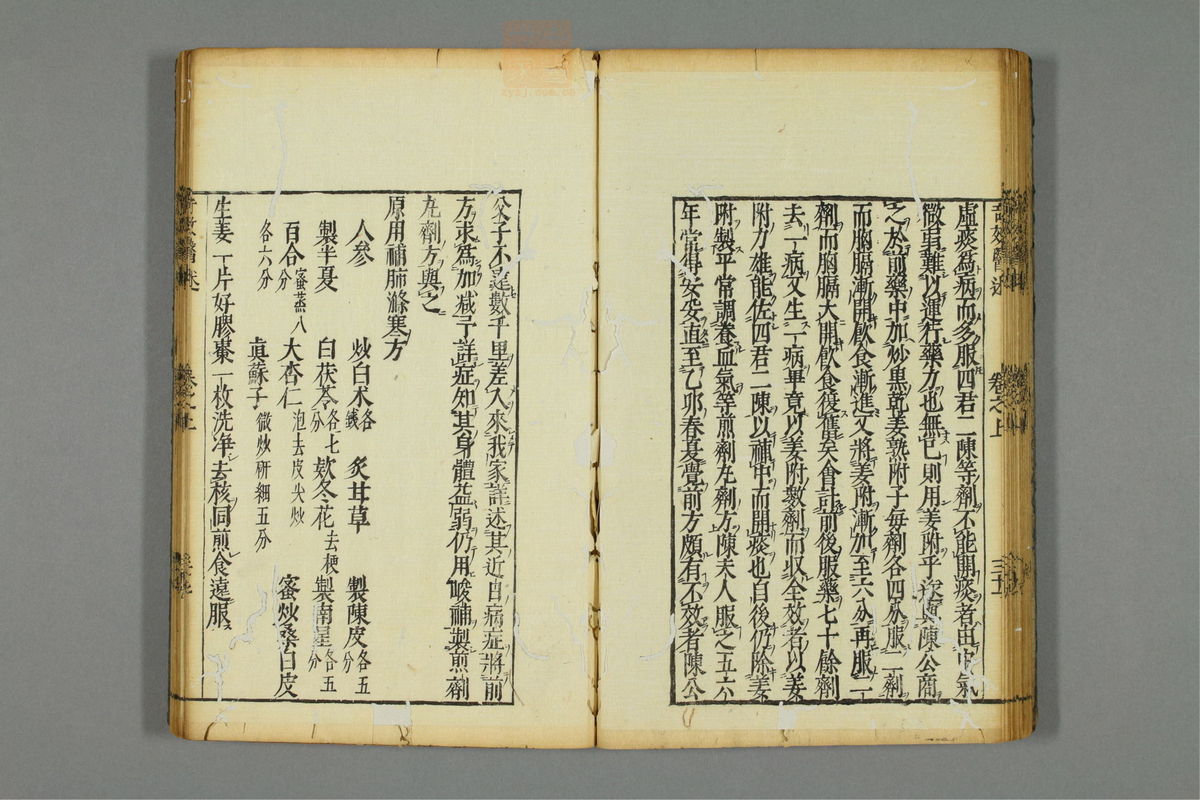 虛痰為病而多服四君二陳等劑不能開痰者由中氣
微弱難以運行藥力也無已則用姜附乎遂與陳公商
之於前藥中加炒黑乾姜熟附子每劑各四分服一劑
而胸膈漸開飲食漸進又將姜附漸加至六分再服一
劑而胸膈大開飲食復舊矣會計前後服藥七十餘劑
去一病又生一病畢竟以姜附數劑而収全效者以姜
附力雄能佐四君二陳以補中而開痰也自後仍除姜
附製平常調養血氣等煎劑丸劑方陳夫人服之五六
年常得安妥直至乙卯春夏覺前方頗有不效者陳公
父子不遠數千里差人來我家詳述其近日病症將前
方求為加減予詳症知其身體益弱仍用峻補製煎劑
丸劑方與之
原用補肺滌寒方
人參 炒白术各一錢 炙甘草 製陳皮各五分
製半夏 白茯苓各七分 欵冬花去梗 製南星各五分
百合蜜蒸八分 大杏仁泡去皮尖炒 蜜炒桑白皮
各六分 真蘇子微炒研細五分
生姜一片好膠棗一枚洗净去核同煎食遠服